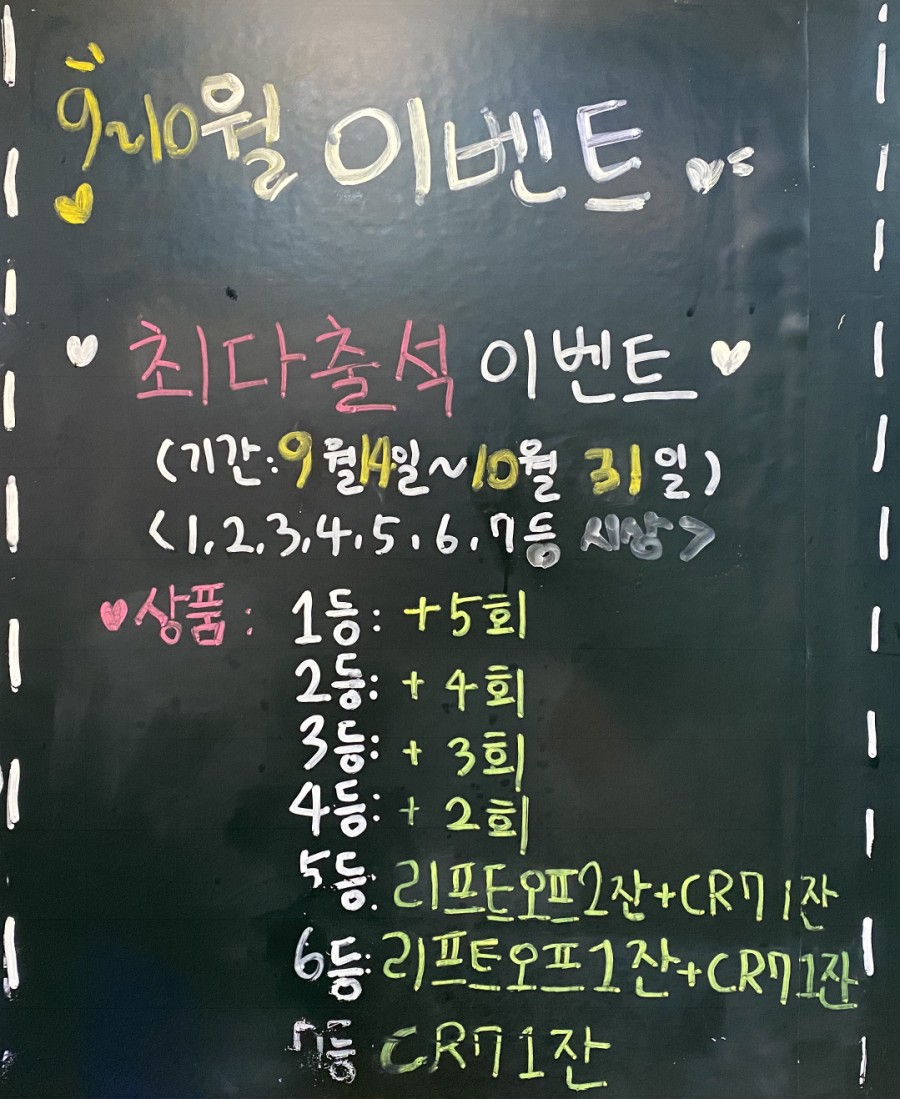 9~10월 이벤트
최다출석 이벤트
(기간: 9월14일~10월 31일)
<1,2,3,4,5,6,7등 시상>
상품: 1등: +5회
2등: + 4회
3등: + 3회
4등: + 2회
5등: 리프트오프2잔+CR7 1잔
6등: 리프트오프1잔+CR7 1잔
7등 CR7 1잔